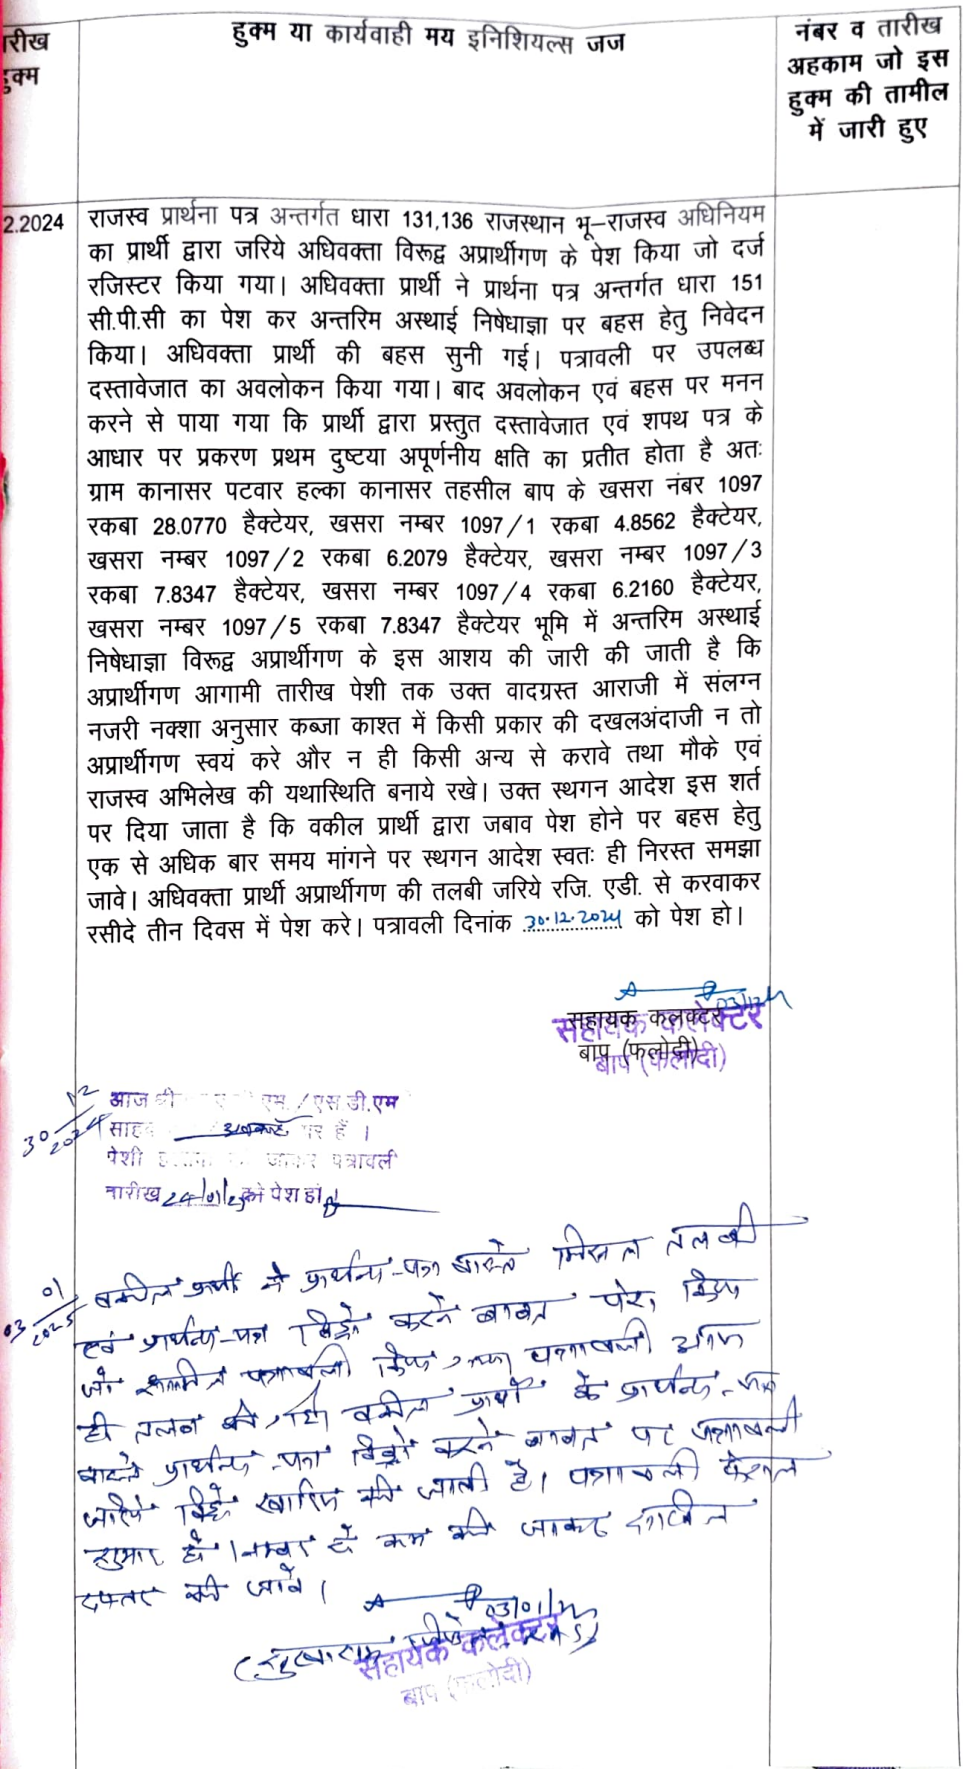 रीख
हुक्म
हुक्म या कार्यवाही मय इनिशियल्स जज
नंबर व तारीख
अहकाम जो इस
हुक्म की तामील
में जारी हुए
2.2024
राजस्व प्रार्थना पत्र अन्तर्गत धारा 131,136 राजस्थान भू–राजस्व अधिनियम
का प्रार्थी द्वारा जरिये अधिवक्ता विरूद्व अप्रार्थीगण के पेश किया जो दर्ज
रजिस्टर किया गया। अधिवक्ता प्रार्थी ने प्रार्थना पत्र अन्तर्गत धारा 151
सी.पी.सी का पेश कर अन्तरिम अस्थाई निषेधाज्ञा पर बहस हेतु निवेदन
किया। अधिवक्ता प्रार्थी की बहस सुनी गई। पत्रावली पर उपलब्ध
दस्तावेजात का अवलोकन किया गया। बाद अवलोकन एवं बहस पर मनन
करने से पाया गया कि प्रार्थी द्वारा प्रस्तुत दस्तावेजात एवं शपथ पत्र के
आधार पर प्रकरण प्रथम दुष्टया अपूर्णनीय क्षति का प्रतीत होता है अतः
ग्राम कानासर पटवार हल्का कानासर तहसील बाप के खसरा नंबर 1097
रकबा 28.0770 हैक्टेयर, खसरा नम्बर 1097/1 रकबा 4.8562 हैक्टेयर,
खसरा नम्बर 1097/2 रकबा 6.2079 हैक्टेयर, खसरा नम्बर 1097/3
रकबा 7.8347 हैक्टेयर, खसरा नम्बर 1097/4 रकबा 6.2160 हैक्टेयर,
खसरा नम्बर 1097/5 रकबा 7.8347 हैक्टेयर भूमि में अन्तरिम अस्थाई
निषेधाज्ञा विरूद्व अप्रार्थीगण के इस आशय की जारी की जाती है कि
अप्रार्थीगण आगामी तारीख पेशी तक उक्त वादग्रस्त आराजी में संलग्न
नजरी नक्शा अनुसार कब्जा काश्त में किसी प्रकार की दखलअंदाजी न तो
अप्रार्थीगण स्वयं करे और न ही किसी अन्य से करावे तथा मौके एवं
राजस्व अभिलेख की यथास्थिति बनाये रखे। उक्त स्थगन आदेश इस शर्त
पर दिया जाता है कि वकील प्रार्थी द्वारा जबाव पेश होने पर बहस हेतु
एक से अधिक बार समय मांगने पर स्थगन आदेश स्वतः ही निरस्त समझा
जावे। अधिवक्ता प्रार्थी अप्रार्थीगण की तलबी जरिये रजि. एडी. से करवाकर
रसीदे तीन दिवस में पेश करे। पत्रावली दिनांक 30.12.2024 को पेश हो।
03/12/24
सहायक कलक्टर
बाप (फलोदी)
सहायक कलेक्टर
बाप (फलोदी)
30/12/2024
आज श्री एम./एस.डी.एम
साहब अवकाश पर हैं।
पेशी जाकर पत्रावली
तारीख 24/01/25 को पेश हो
03/01/2025
वकील प्रार्थी ने प्रार्थना-पत्र वास्ते मिसल तलबी
एवं प्रार्थना-पत्र विड्रो करने बाबत पेश किया
जो शामिल पत्रावली किया गया पत्रावली आज
ही तलब की गयी। वकील प्रार्थी के प्रार्थना-पत्र
वास्ते प्रार्थना-पत्र विड्रो करने बाबत पर पत्रावली
जरिये विड्रो खारिज की जाती है। पत्रावली फैसल
शुमार हो। नम्बर से कम की जाकर दाखिल
दफ्तर की जावे।
03/01/25
सहायक कलेक्टर
बाप (फलोदी)